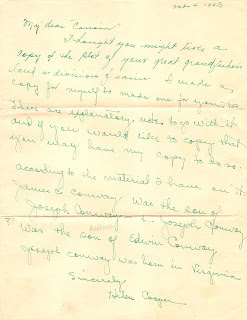 My dear "Cousin"
I thought you might like a
copy of the plot of your great grandfather's
land or division of same. I made a
copy for myself so made one for you too.
There are explanatory notes to go with it
and if you would like to copy that
you may have my copy to do so.
according to the material I have on it
James C. Conway was the son of
Joseph Conway + Joseph Conway
was the son of Edwin Conway
Joseph Conway was born in Virginia
Sincerely
Helen Cooper